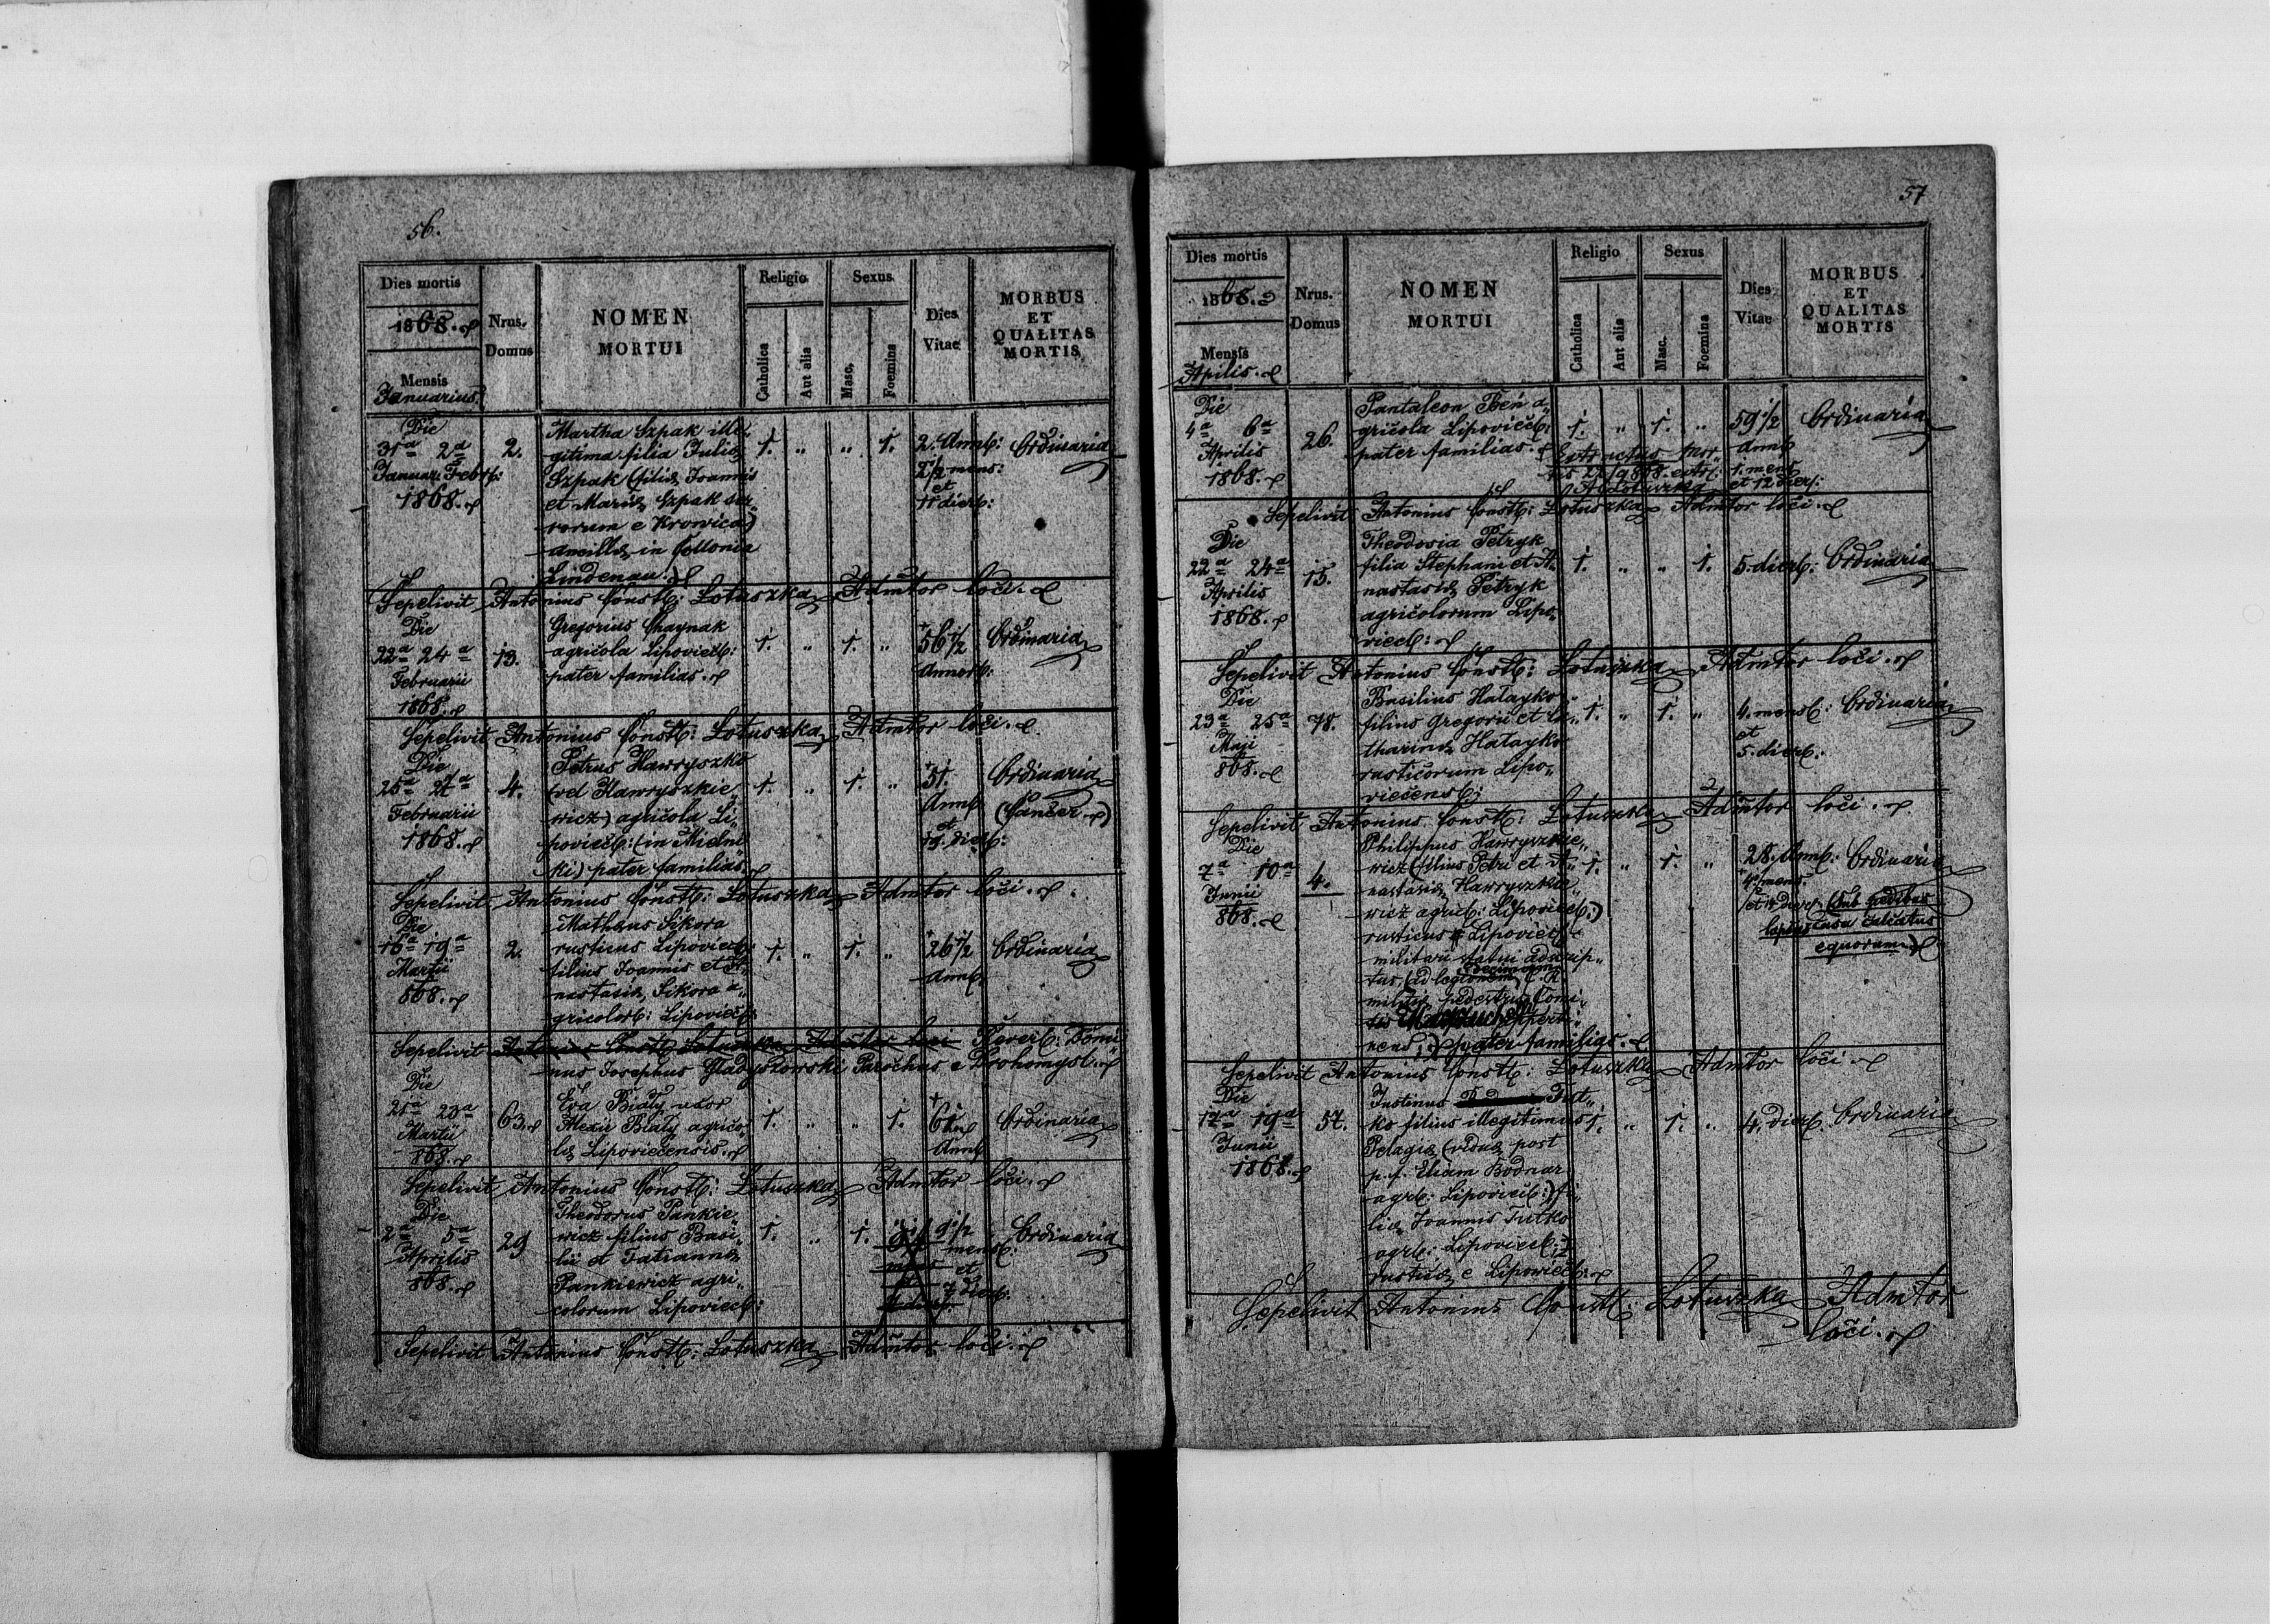 56.
Dies mortis
1868.
Mensis
Januarius.
Nrus.
Domus
NOMEN
MORTUI
Religio
Catholica
Aut alia
Sexus
Masc.
Foemina
Dies
Vitae
MORBUS
ET
QUALITAS
MORTIS
Die
31a 2a
Januar: Febr:
1868.
2.
Martha Szpak ille„
gitima filia Juliae
Szpak (filiae Joannis
et Mariae Szpak
e Krowica)
ancillae in Collonia
Lindenau.)
1. „ „ 1.
2. Annb:
mens:
et
11 dierb:
Ordinaria
Sepelivit Antonius Constt: Lotuszka Admtor loci.
Die
22a 24a
Februarii
1868.
13.
Gregorius Chaynak
agricola Lipoviecb:
pater familias.
1. „ 1. „
56 1/2
Annorb:
Ordinaria
Sepelivit Antonius Constt: Lotuszka Admtor loci.
Die
25a 27a
Februarii
1868.
4.
Petrus Hawryszko
(vel Hawryszkie„
wicz) agricola Li„
poviecb: (in Mielni
ki) pater familias.
1. „ 1. „
51.
Annb
et
13. dierb:
Ordinaria
(Cancer)
Sepelivit Antonius Constt: Lotuszka Admtor loci.
Die
16a 19a
Martii
868.
2.
Mathaeus Sikora
rusticus Lipoviecb:
filius Joannis et A„
nastasiae Sikora a„
gricolorb: Lipoviecb:
1. „ 1. „
26 1/2
Annb.
Ordinaria
Sepelivit Antonius Constt: Lotuszka Admtor loci Reverb: Domi
nus Josephus Gladyszowski Parochus e Drohomysl.
Die
21a 23a
Martii
868.
63.
Eva Bialy uxor
Alexii Bialy agrico„
lae Lipoviecensis.
1. „ „ 1.
61
Annb
Ordinaria
Sepelivit Antonius Constt: Lotuszka Admtor loci.
Die
2a 5a
Aprilis
868.
29
Theodorus Pankie„
wicz filius Basi„
lii et Tatiannae
Pankiewicz agri„
colorum Lipoviecb:
1. „ 1.
9 1/2
mensb:
et
7 dierb:
Ordinaria
Sepelivit Antonius Constt: Lotuszka Admtor loci.
57
Dies mortis
1868.
Mensis
Apilis.
Nrus.
Domus
NOMEN
MORTUI
Religio
Catholica
Aut alia
Sexus
Masc.
Foemina
Dies
Vitae
MORBUS
ET
QUALITAS
MORTIS
Die
4a 6a
Aprilis
1868.
26.
Pantaleon Beń a„
gricola Lipoviecb:
pater familias.
1. „ 1. „
59 1/2
Annb
1. mens
et 12 dierb:
Ordinaria
Extractus mor„
A Lotuszka
Sepelivit Antonius Constt: Lotuszka Admtor loci.
Die
22a 24a
Aprilis
1868.
15.
Theodosia Petryk
filia Stephani et A„
nastasiae Petryk
agricolorum Lipo„
viecb:
1. „ „ 1.
5. dierb:
Ordinaria
Sepelivit Antonius Constt: Lotuszka Admtor loci.
Die
23a 25a
Maji
868.
78.
Basilius Hatayko
filius Gregorii et Ca„
tharinae Hatayko
rusticorum Lipo„
viecensb:
1. „ 1. „
4. mensb:
et
5. dierb:
Ordinaria
Sepelivit Antonius Constt: Lotuszka Admtor loci.
Die
7a 10a
Junii
868.
4.
Philippus Hawryszkie„
wicz (filius Petri et A„
nastasiae Hawryszkie„
wicz agricb: Lipoviecb:)
rusticus Lipoviecb
militari statui adscrip„
tus, (ad legionem C. R.
militiae pedestris Comi„
pater familias.
1. „ 1. „
28. Annb:
4 mens.
et dierb.
Ordinaria
(Sub pedibus
casu calcatus
equorum)
Sepelivit Antonius Constt: Lotuszka Admtor loci.
Die
17a 19a
Junii
1868.
57.
Justinus Tut„
ko filius illegitimus
Pelagiae (viduae post
p. f. Eliam Bodnar
agrb: Lipoviecb:) fi„
liae Joannis Tutko
agrb: Lipoviecb:
rusticae e Lipowiecb:
1. „ 1. „
4. dierb.
Ordinaria
Sepelivit Antonius Constt: Lotuszka Admtor
loci.